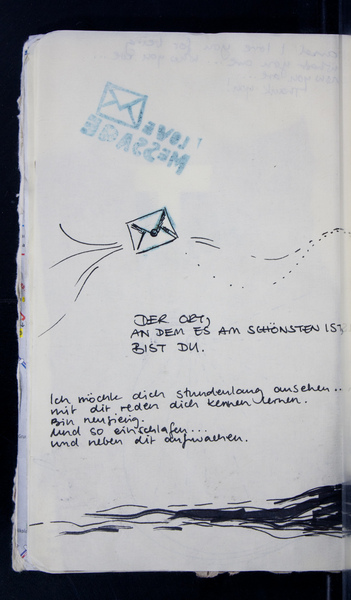 I LOVE
MESSAGE
DER ORT,
AN DEM ES AM SCHÖNSTEN IST,
BIST DU.
Ich möchte dich stundenlang ansehen..
mit dir reden dich kennen lernen.
Bin neugierig.
Und so einschlafen...
und neben dir aufwachen.